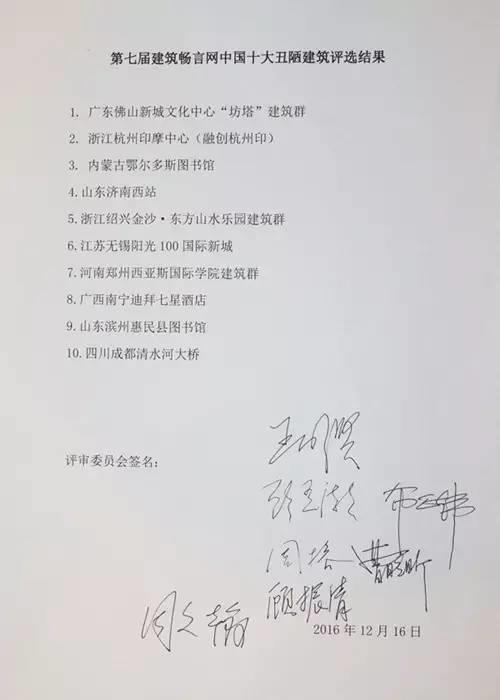 第七届建筑畅言网中国十大丑陋建筑评选结果
1. 广东佛山新城文化中心“坊塔”建筑群
2. 浙江杭州印摩中心（融创杭州印）
3. 内蒙古鄂尔多斯图书馆
4.山东济南西站
5.浙江绍兴金沙·东方山水乐园建筑群
6.江苏无锡阳光 100 国际新城
7.河南郑州西亚斯国际学院建筑群
8.广西南宁迪拜七星酒店
9.山东滨州惠民县图书馆
10.四川成都清水河大桥
评审委员会签名：
顾振清
2016 年 12 月 16 日